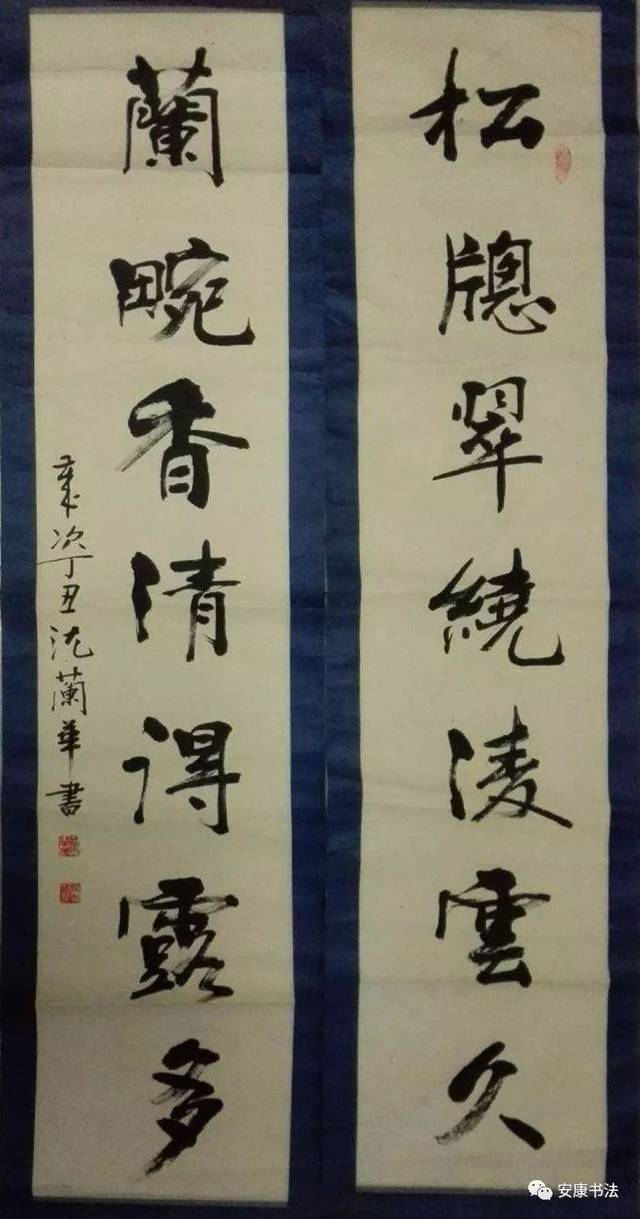 松牕翠繞淩雲久
蘭畹香清得露多
歲次丁丑沈蘭華書
安康书法